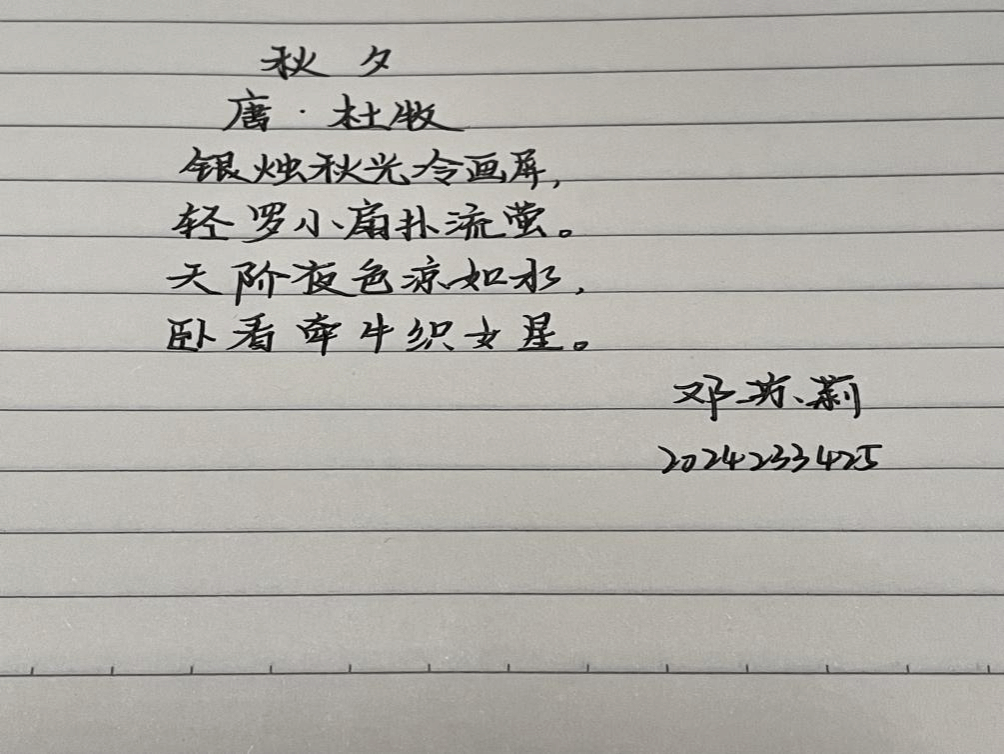 秋夕
唐·杜牧
银烛秋光冷画屏,
轻罗小扇扑流萤。
天阶夜色凉如水,
卧看牵牛织女星。
邓苏莉
2024233425